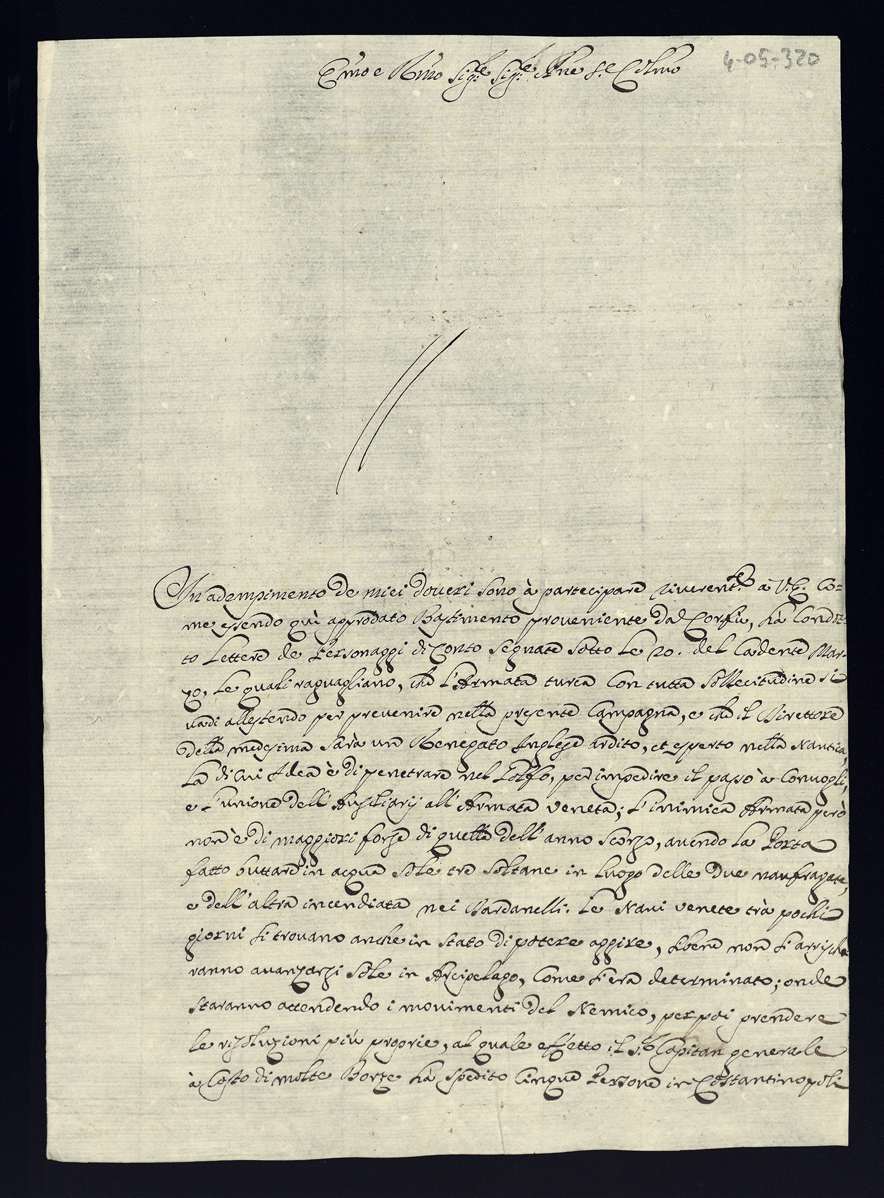 Em͞o e Rm͞o Sig.re Sig.re e Pne S.e Col͞mo
4-05-320
In adempimento de miei doueri sono à partecipare riuerentem.te à V.E. Co=
me essendo quì approdato Bastimento proueniente dal Corfiu, hà Condot=
to Lettere de Personaggi di Conto segnate sotto le 20. del Cadente Mar=
zo, le quali raguagliano, che l'Armata turca con tutta sollecitudine si
uadi allestendo per preuenire nella presente Campagna, e che il Direttore
della medesima sarà un Renegato Inglese ardito, et esperto nella Nautica,
la di cui Idea è di penetrare nel Golfo, per impedire il passo à Conuogli,
e l'unione dell'Ausiliarij all'Armata veneta; L'inimica Armata però
non è di maggiori forze di quella dell'anno scorso, auendo la Porta
fatto buttare in acqua sole tre soltane in luogo delle due naufragate,
e dell'altra incendiata nei Dardanelli. Le Naui venete trà pochi
giorni si trouano anche in stato di potere aggire, mà non si arrischie
ranno auanzarsi sole in Arcipelago, come si era determinato; onde
staranno attendendo i mouimenti del Nemico, per poi prendere
le risoluzioni più proprie, al quale effetto il S.r Capitan generale
à Costo di molte Borze hà spedito Cinque Persone in Costantinopoli